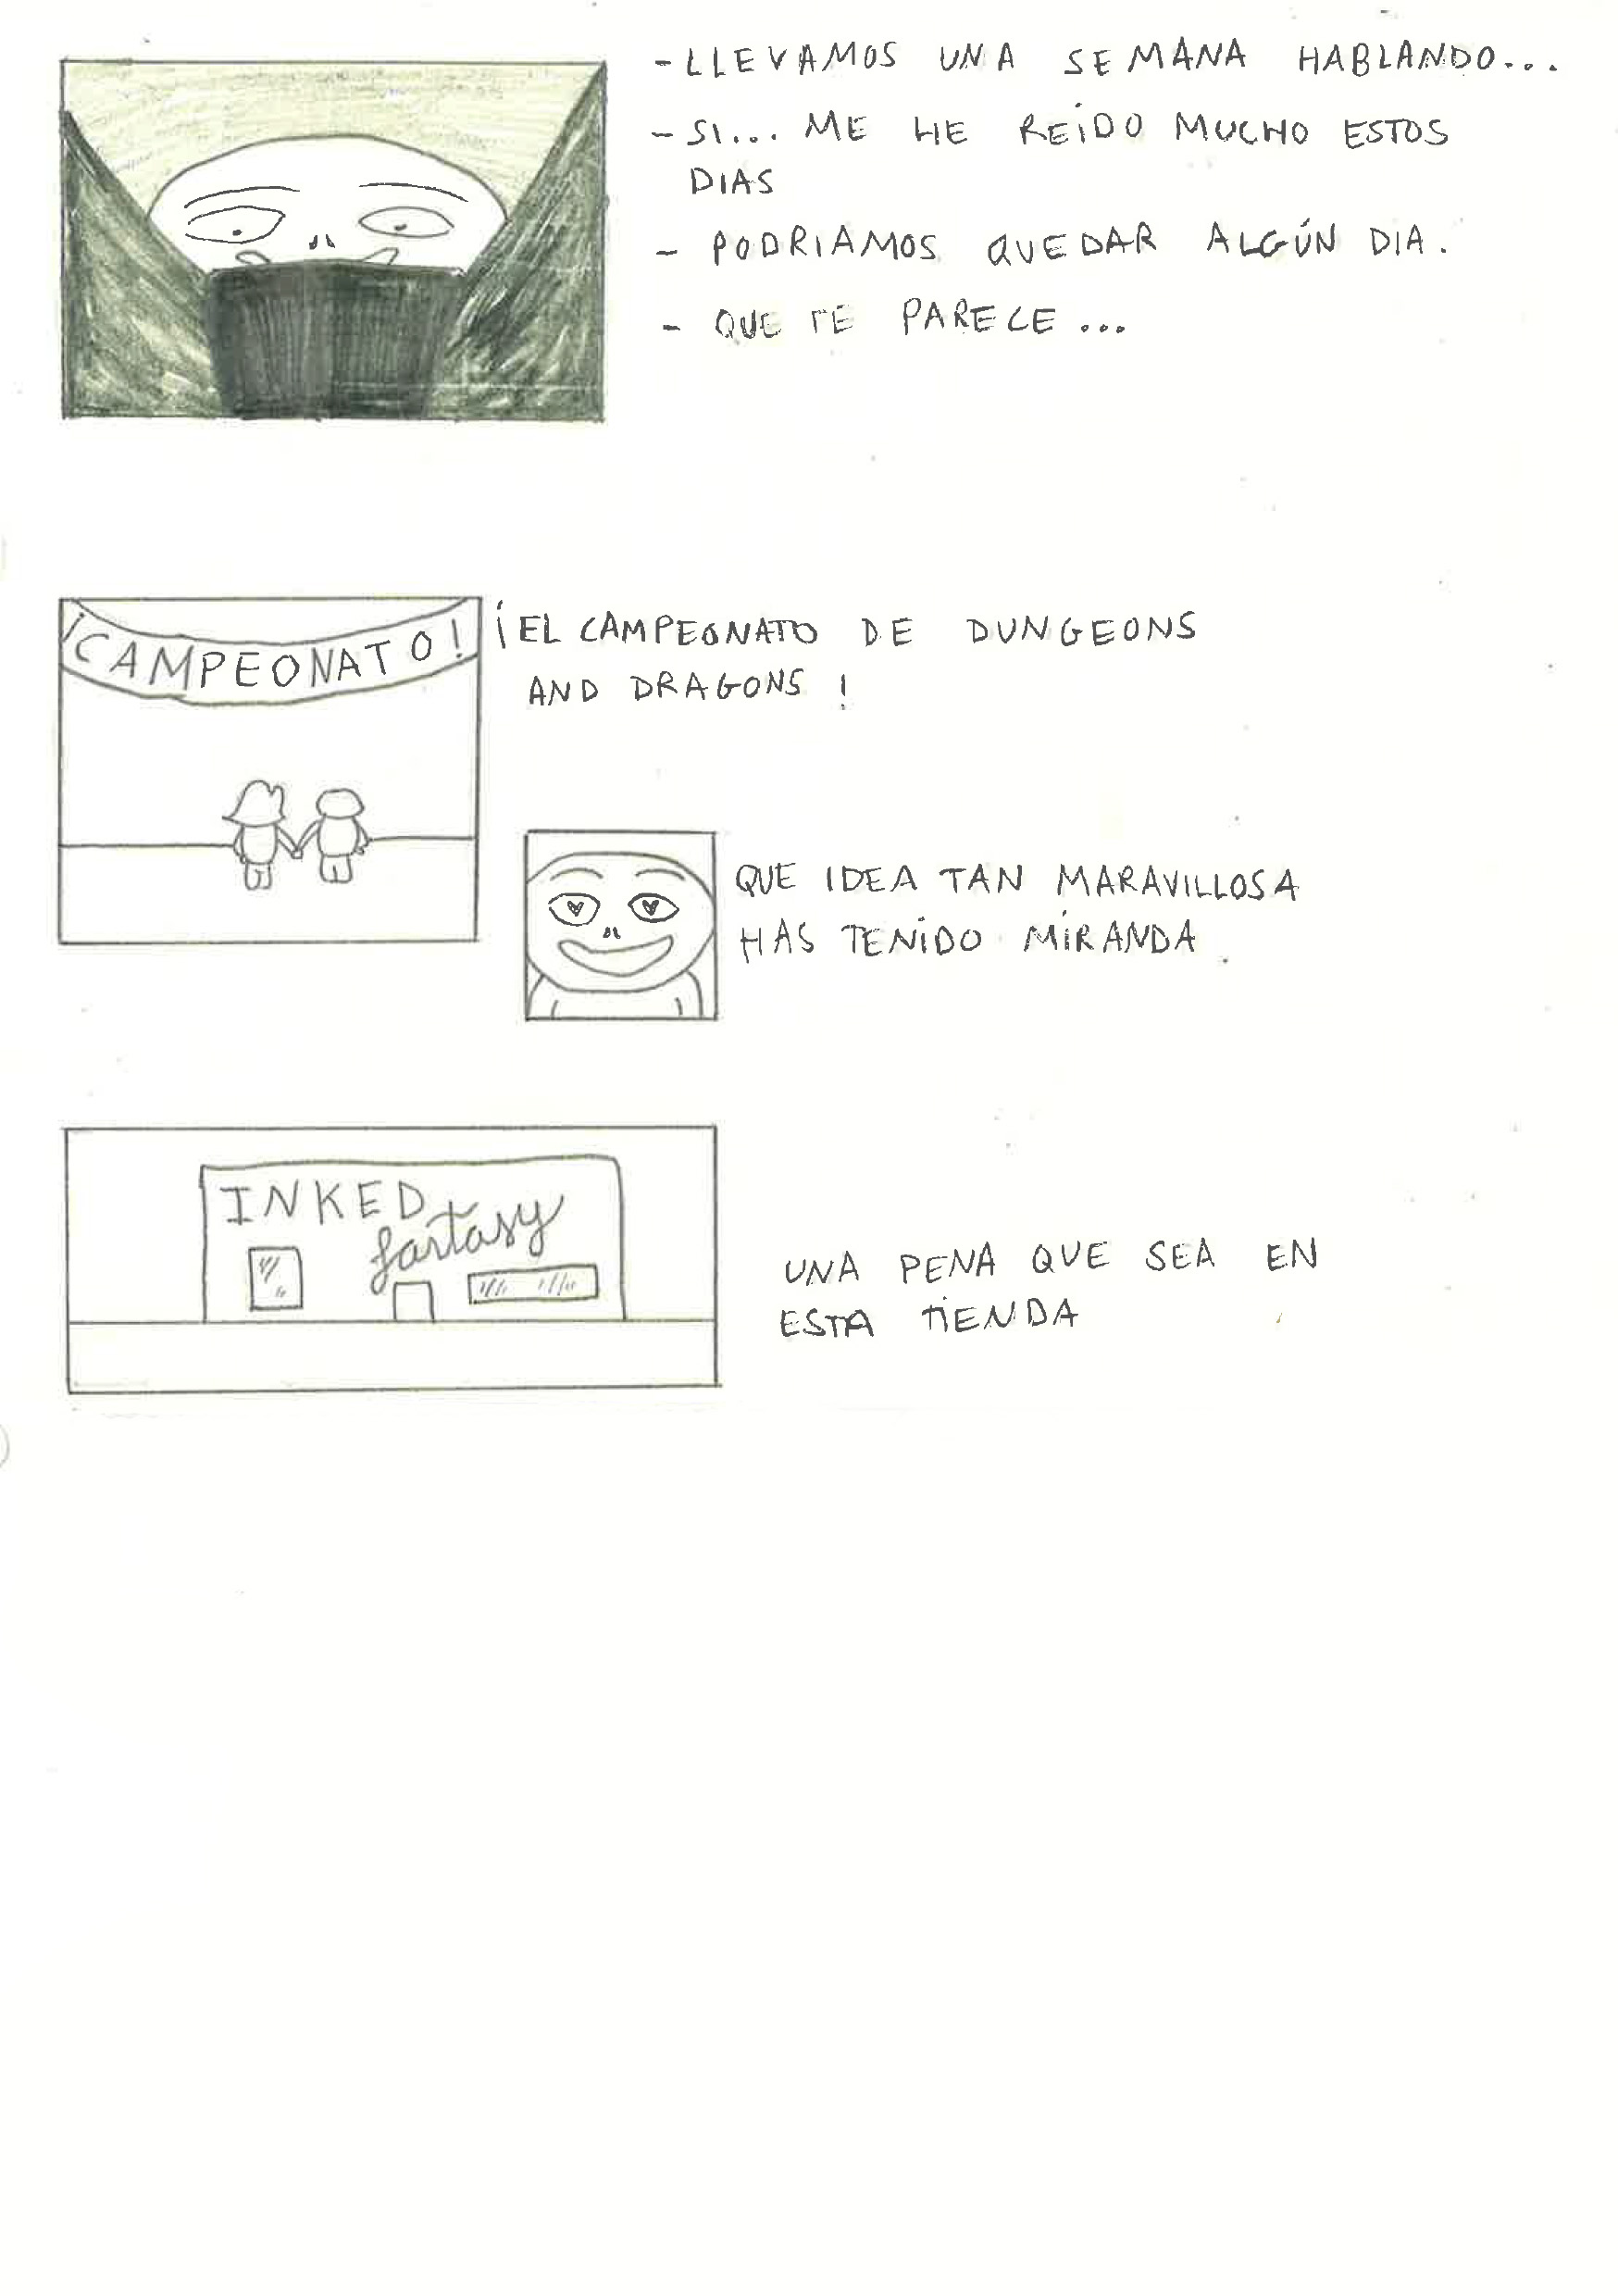 - LLEVAMOS UNA SEMANA HABLANDO...
- SI... ME HE REIDO MUCHO ESTOS
DIAS
- PODRIAMOS QUEDAR ALGÚN DIA.
- QUE TE PARECE...
¡CAMPEONATO!
¡EL CAMPEONATO DE DUNGEONS
AND DRAGONS!
QUE IDEA TAN MARAVILLOSA
HAS TENIDO MIRANDA.
INKED
fantasy
UNA PENA QUE SEA EN
ESTA TIENDA